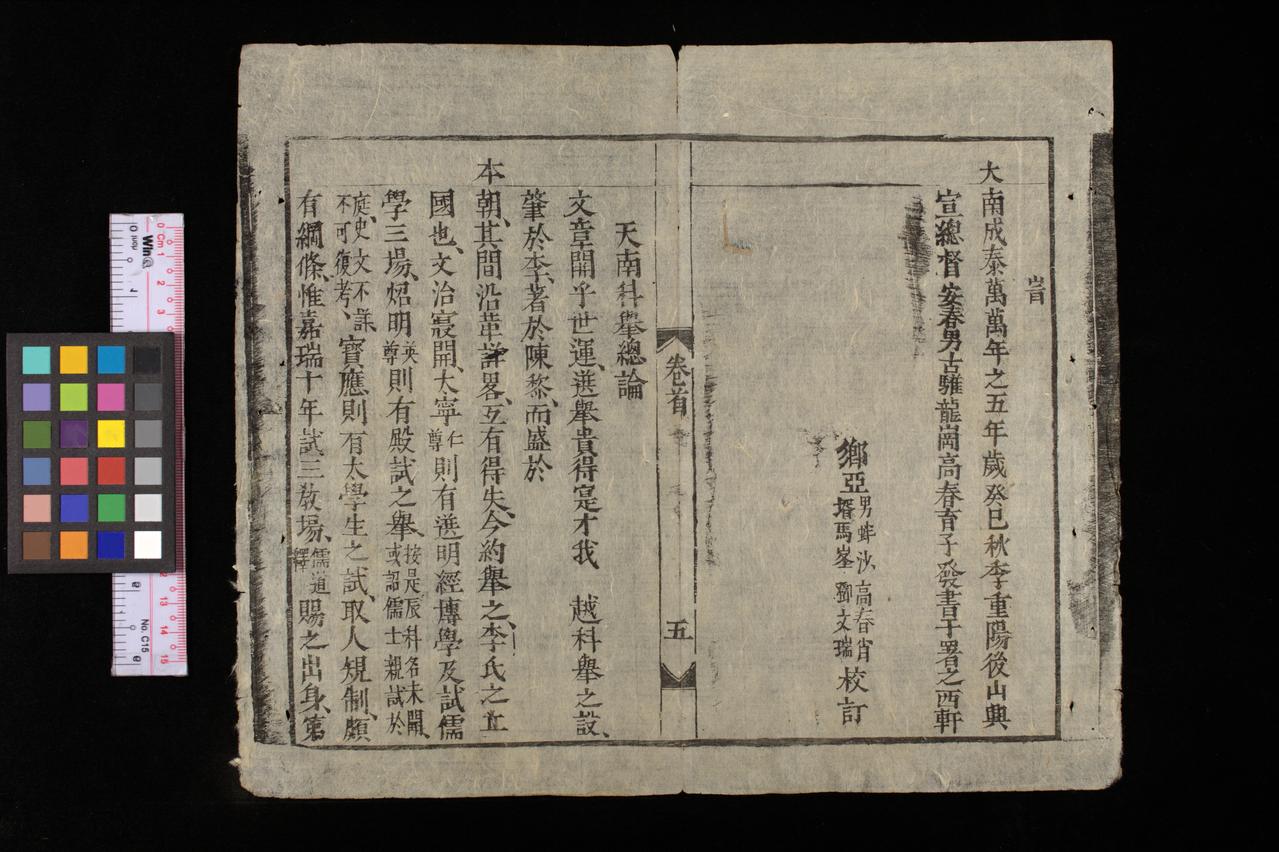 大南成泰萬萬年之五年歲癸巳秋季重陽後山興
宣總督安春男古騅龍崗高春育子發書于署之西軒
鄉亞男蚌沙高春肖
壻馬峯鄧文瑞校訂
卷首
五
天南科舉總論
文章開乎世運、選舉貴得寔才我 越科舉之設、
肇於李、著於陳黎、而盛於
本朝、其間沿革詳畧、互有得失、今約舉之、李氏之立
國也、文治寢開、太寧仁尊則有選明經博學及試儒
學三場、炤明英尊則有殿試之舉、按是辰科名未開、或詔儒士親試於
庭、史文不詳、不可復考、寶應則有太學生之試、取人規制、頗
有綱條、惟嘉瑞十年試三教場、儒道釋賜之出身、第
Win@
0 Cm 1
2
3
13
14
15
No. C15